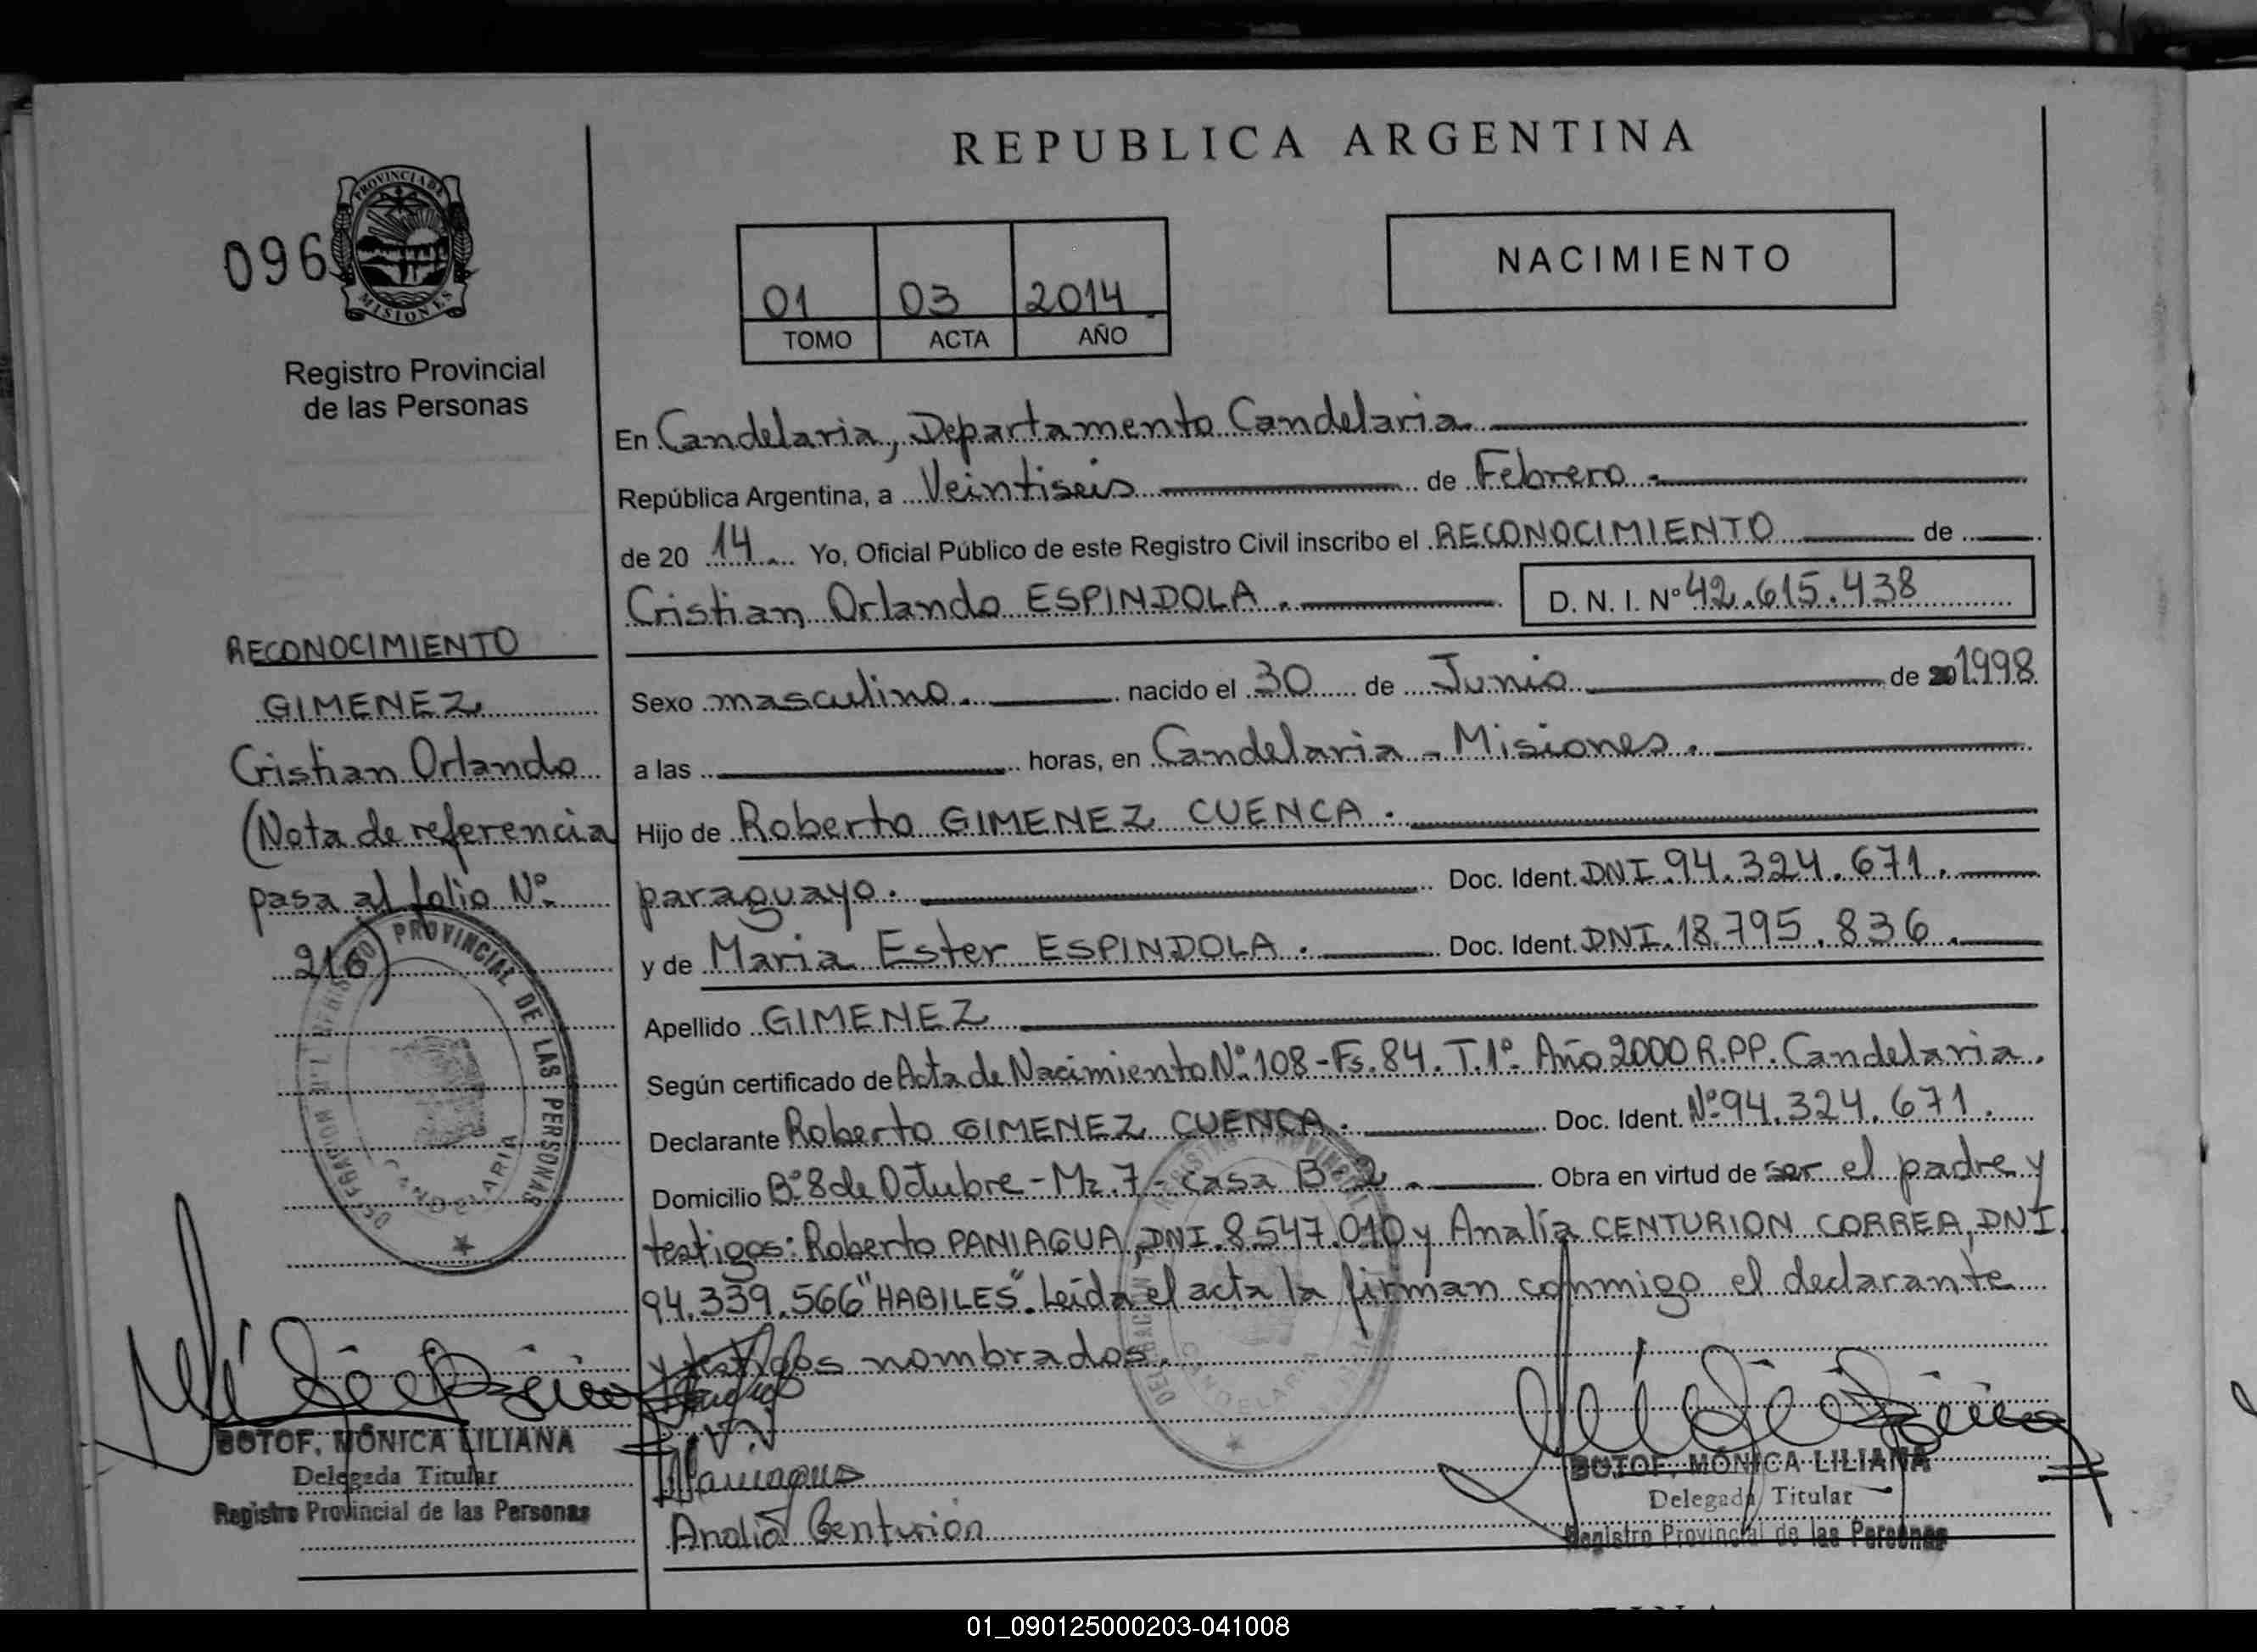 REPUBLICA ARGENTINA
096
PROVINCIA DE
MISIONES
NACIMIENTO
01 03 2014
TOMO ACTA AÑO
Registro Provincial
de las Personas
En Candelaria, Departamento Candelaria.
República Argentina, a Veintiseis de Febrero.
de 20 14. Yo, Oficial Público de este Registro Civil inscribo el RECONOCIMIENTO de
Cristian Orlando ESPINDOLA. D. N. I. Nº 42.615.438
Sexo masculino. nacido el 30 de Junio de 1998
a las horas, en Candelaria - Misiones.
Hijo de Roberto GIMENEZ CUENCA.
paraguayo. Doc. Ident. DNI. 94.324.671.
y de Maria Ester ESPINDOLA. Doc. Ident. DNI. 18.795.836.
Apellido GIMENEZ
Según certificado de Acta de Nacimiento Nº 108 - Fs. 84. T. 1º Año 2000 R.PP. Candelaria.
Declarante Roberto GIMENEZ CUENCA. Doc. Ident. Nº 94.324.671.
Domicilio Bº 8 de Octubre - Mz. 7 - casa B 2. Obra en virtud de ser el padre y
testigos: Roberto PANIAGUA, DNI. 8.547.010 y Analía CENTURION CORREA, DNI.
94.339.566 "HABILES". Leída el acta la firman conmigo el declarante
y testigos nombrados.
RECONOCIMIENTO
GIMENEZ
Cristian Orlando
(Nota de referencia
pasa al folio Nº
216)
REGISTRO PROVINCIAL DE LAS PERSONAS
CANDELARIA
BOTOF, MÓNICA LILIANA
Delegada Titular
Registro Provincial de las Personas
Paniagua
Analia Centurión
BOTOF, MÓNICA LILIANA
Delegada Titular
Registro Provincial de las Personas
01_090125000203-041008